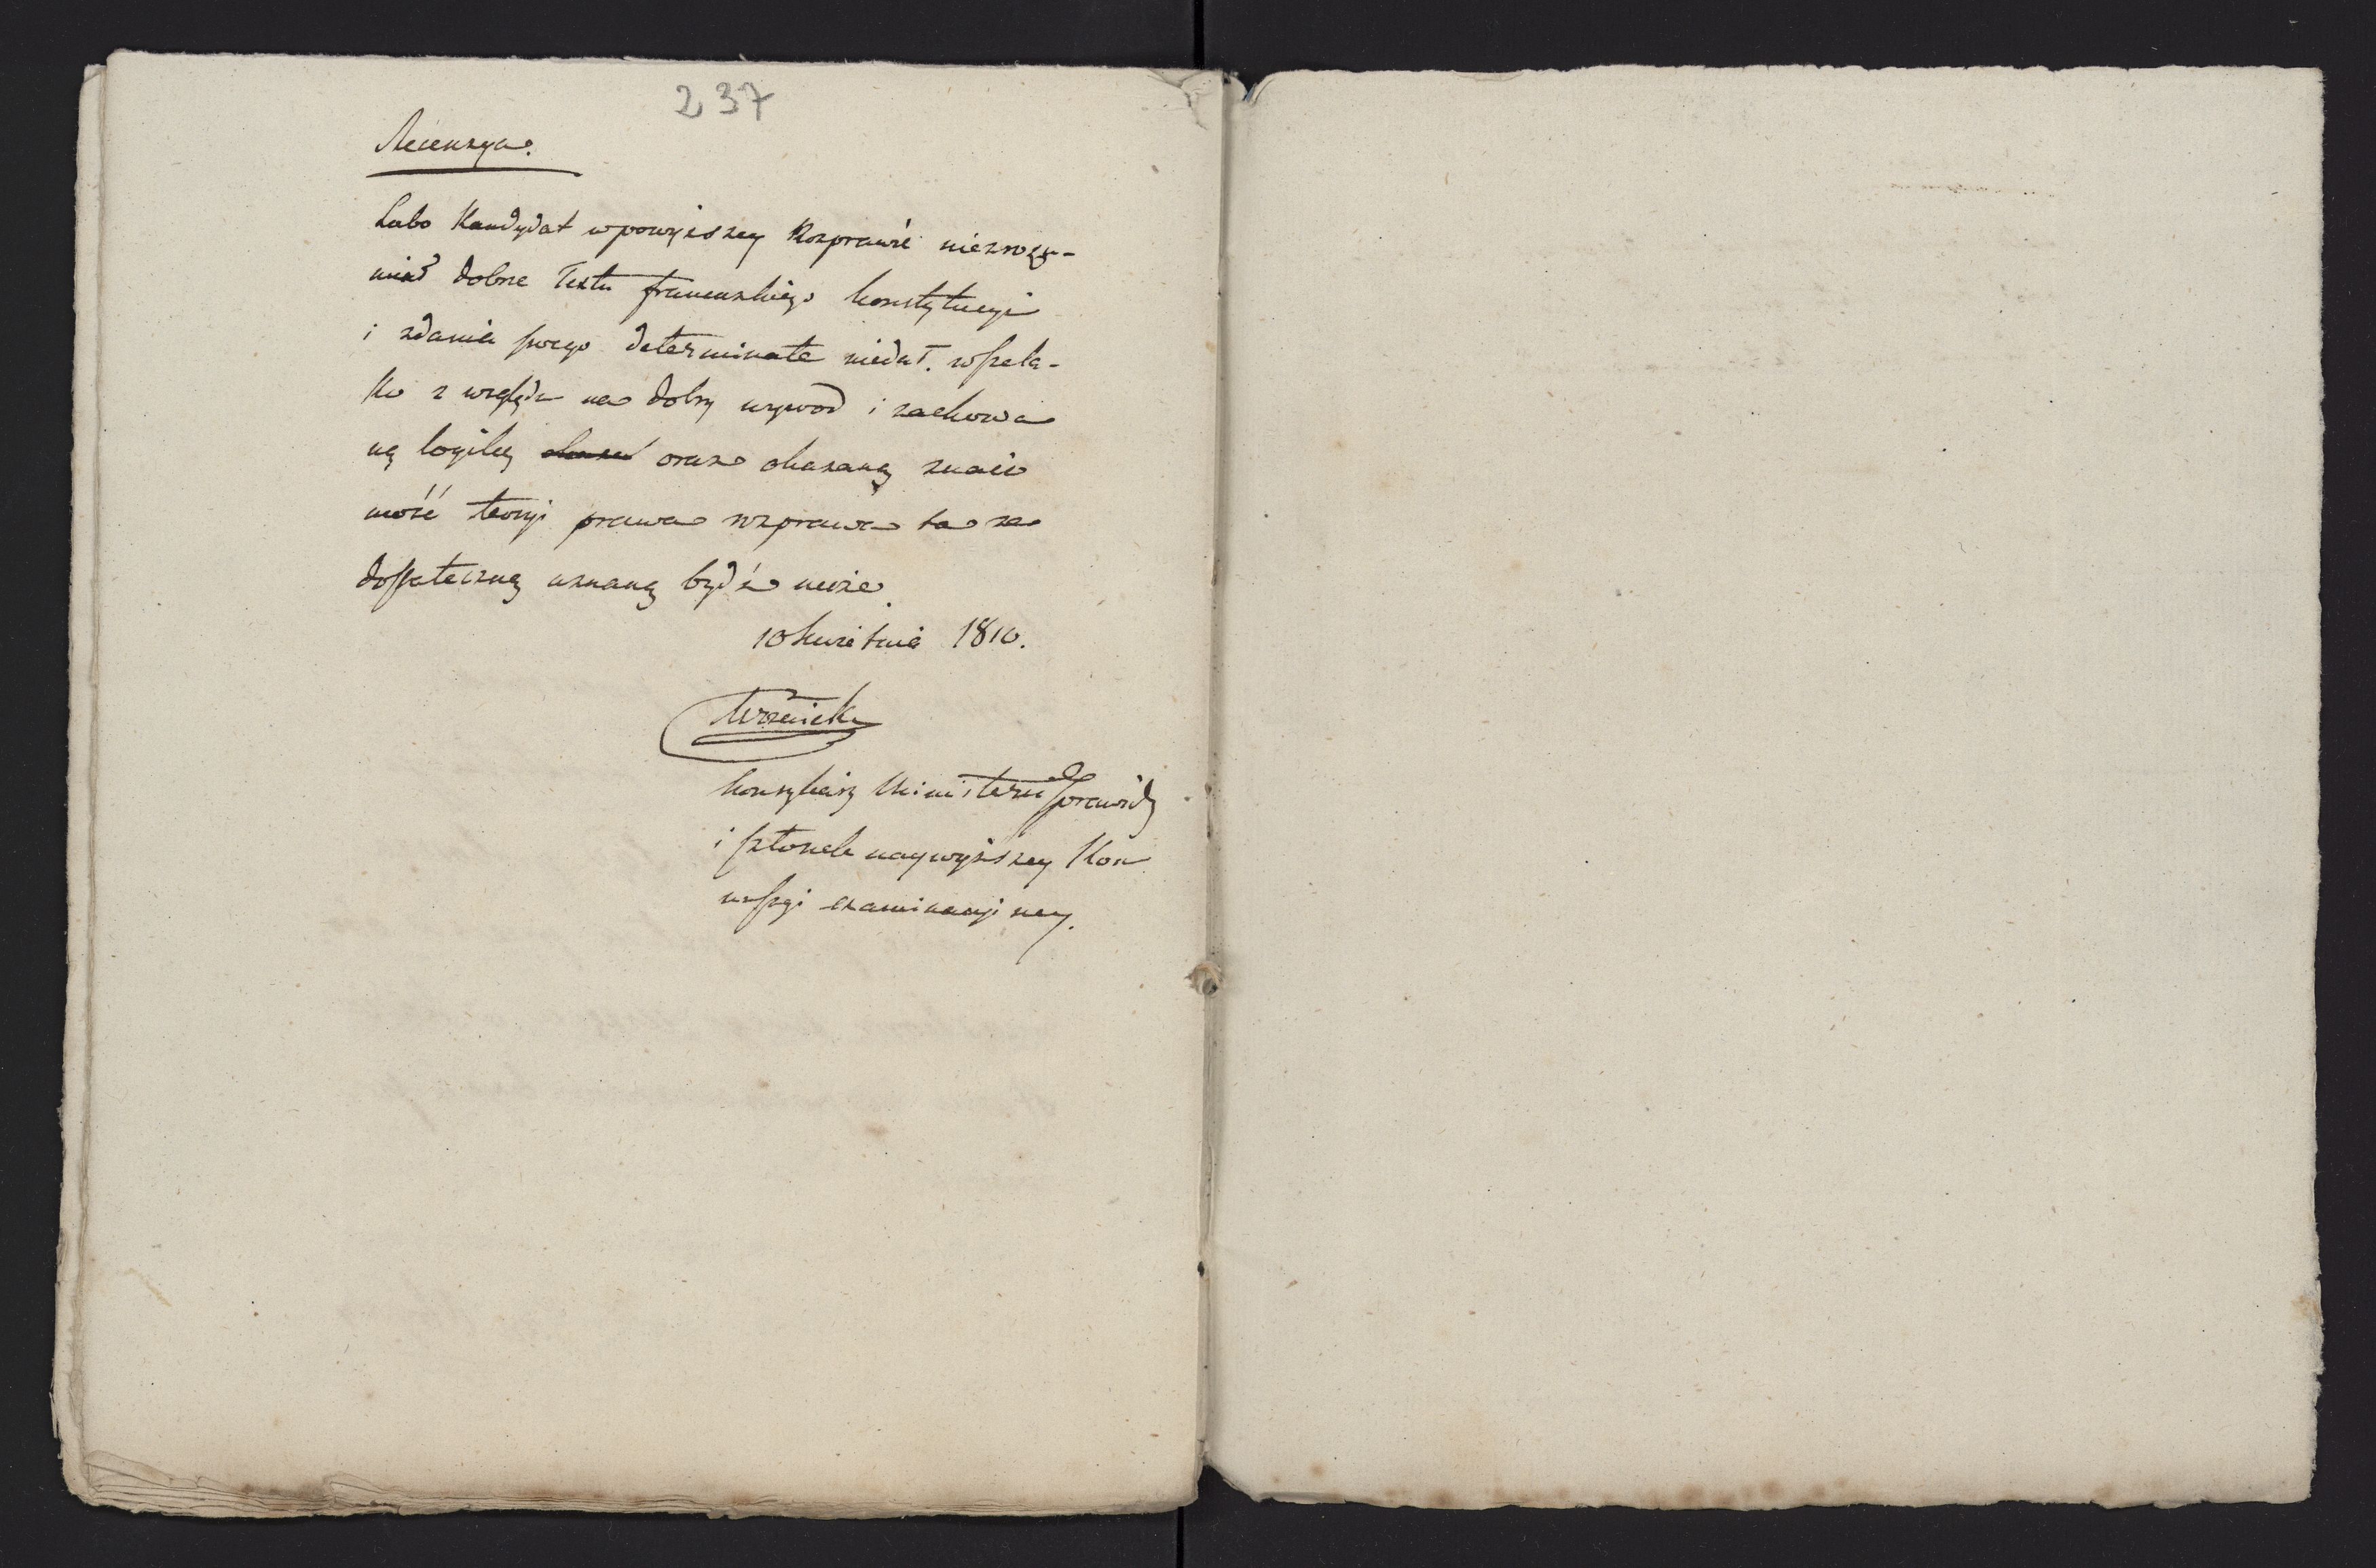 237
Recenzya.
Lubo Kandydat w powyższey Rozprawie niezrozu-
miał dobrze Textu francuzkiego konstytucyi
i zdania swego determinate niedał. wszela-
ko z względu na dobry wywod i zachowa
ną logikę oraz okazaną znaio
mość teoryi prawa rozprawa ta za
dostateczną uznaną bydź może.
10 kwietnia 1810.
Woźnicki
konsyliarz Ministerii Sprawiedy
i członek naywyższey Kom
missyi examinacyiney.